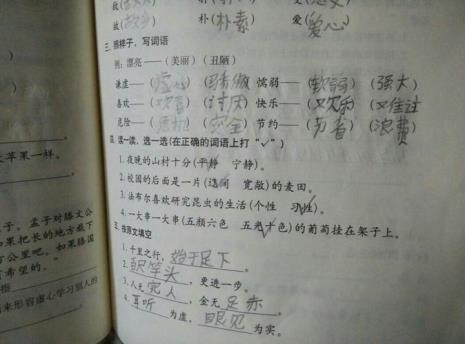 故(故乡) 朴(朴素) 爱(爱心)
三、照样子，写词语
例：漂亮——(美丽)(丑陋)
谦虚——(虚心)(骄傲) 懦弱——(软弱)(强大)
喜欢——(欢喜)(讨厌) 快乐——(欢乐)(难过)
危险——(危机)(安全) 节约——(节省)(浪费)
四、读一读，选一选(在正确的词语上打“√”)
1.夜晚的山村十分(平静 宁静)。
2.校园的后面是一片( 宽敞)的麦田。
3.法布尔喜欢研究昆虫的生活(个性 习性)。
4.一大串一大串(五颜六色 五光十色)的葡萄挂在架子上。
五、按原文填空
1.千里之行，始于足下。
2.百尺竿头，更进一步。
3.人无完人，金无足赤。
4.耳听为虚，眼见为实。
苹果一样。
子。孟子对滕文公
如果把长的地方截下
方公里吧。如果滕国
有希望的。”
指
来形容虚心学习别人的